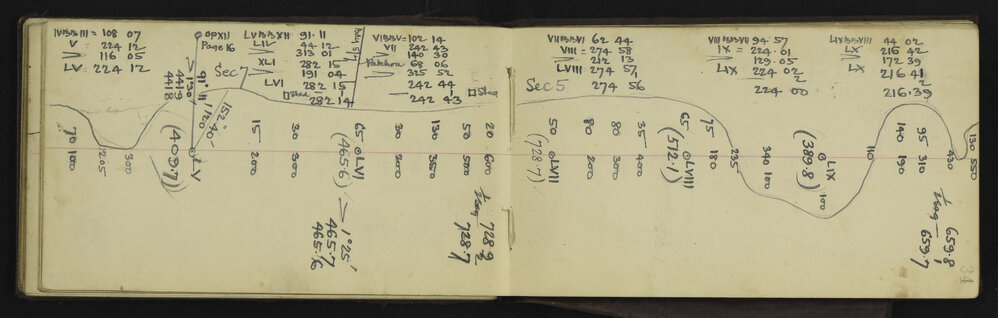 IVBBIII = 108 07
V = 224 12
> 116 05
LV 224 12
OPXII
Page 16
Sec 7
LVBBXII 91.11
LIV 44 12
> 313 01
XLI 282 15
> 191 04
LVI 282 15
Shed 282 14
Bdy 5/7
VIBBV = 102 14
VII 242 43
> 140 30
68 06
> 325 52
242 44
242 43
Shed
91° 11
71°30'
4419
4418
1/20
152° 40'
LV
(409.7)
70 100
205
300
15 200
30 300
65 LVI
(465.6)
> 1°25'
465.7
465.6
30 200
130 350
50 500
20 600
1/2 sag 728.2
728.7
VIIBBVI 62 44
VIII = 274 58
> 212 13
LVIII 274 57
274 56
Sec 5
VIIIBBVII 94 57
IX = 224.01
> 129.05
LIX 224 02
224 00
LIXBBVIII 44 02
LX 216 42
> 172 39
LX 216 41
216.39
50 LVII
(728.7)
80 200
80 300
35 400
65 LVIII
(572.1)
75 180
235
340 100
(389.8)
LIX
100
110
140 190
95 310
430
130 550
1/2 sag 659.8
1
659.7
34